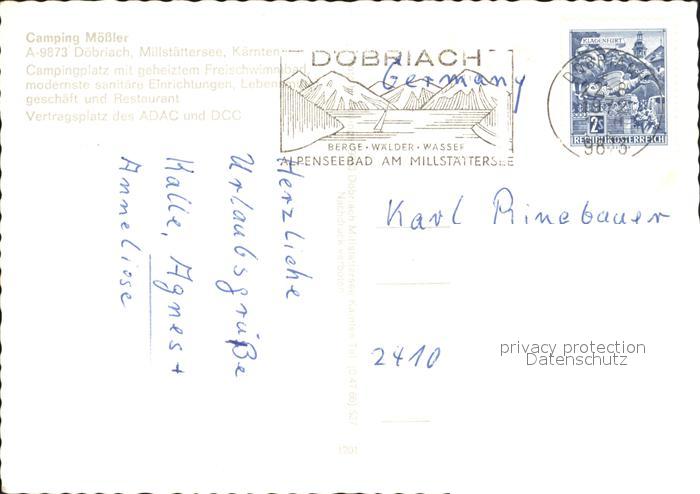 Camping Mößler
A-9873 Döbriach, Millstättersee, Kärnten
Campingplatz mit geheiztem Freischwimmbad
modernste sanitäre Einrichtungen, Lebens
geschäft und Restaurant
Vertragsplatz des ADAC und DCC
DÖBRIACH
BERGE · WÄLDER · WASSER
ALPENSEEBAD AM MILLSTÄTTERSEE
Germany
KLAGENFURT
2S
REPUBLIK ÖSTERREICH
Herzliche
Urlaubsgrüße
Kalle, Agnes +
Anneliese
Karl Rinebauer
2410
privacy protection
Datenschutz
1201